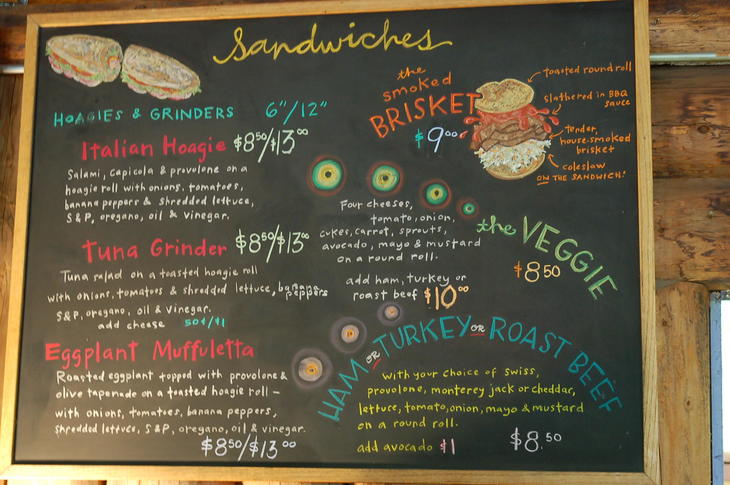 Sandwiches
HOAGIES & GRINDERS 6"/12"
Italian Hoagie $8.50/$13.00
Salami, Capicola & provolone on a
hoagie roll with onions, tomatoes,
banana peppers & shredded lettuce,
S&P, oregano, oil & vinegar.
Tuna Grinder $8.50/$13.00
Tuna salad on a toasted hoagie roll
with onions, tomatoes & shredded lettuce, banana peppers
S&P, oregano, oil & vinegar.
add cheese 50¢/$1
Eggplant Muffuletta
Roasted eggplant topped with provolone &
olive tapenade on a toasted hoagie roll -
with onions, tomatoes, banana peppers,
shredded lettuce, S&P, oregano, oil & vinegar.
$8.50/$13.00
the
smoked
BRISKET
$9.00
toasted round roll
slathered in BBQ
sauce
tender,
house-smoked
brisket
coleslaw
ON THE SANDWICH!
the VEGGIE
$8.50
Four cheeses,
tomato, onion,
cukes, carrot, sprouts,
avocado, mayo & mustard
on a round roll.
add ham, turkey or
roast beef $10.00
HAM OR TURKEY OR ROAST BEEF
with your choice of swiss,
provolone, monterey jack or cheddar,
lettuce, tomato, onion, mayo & mustard
on a round roll.
add avocado $1 $8.50